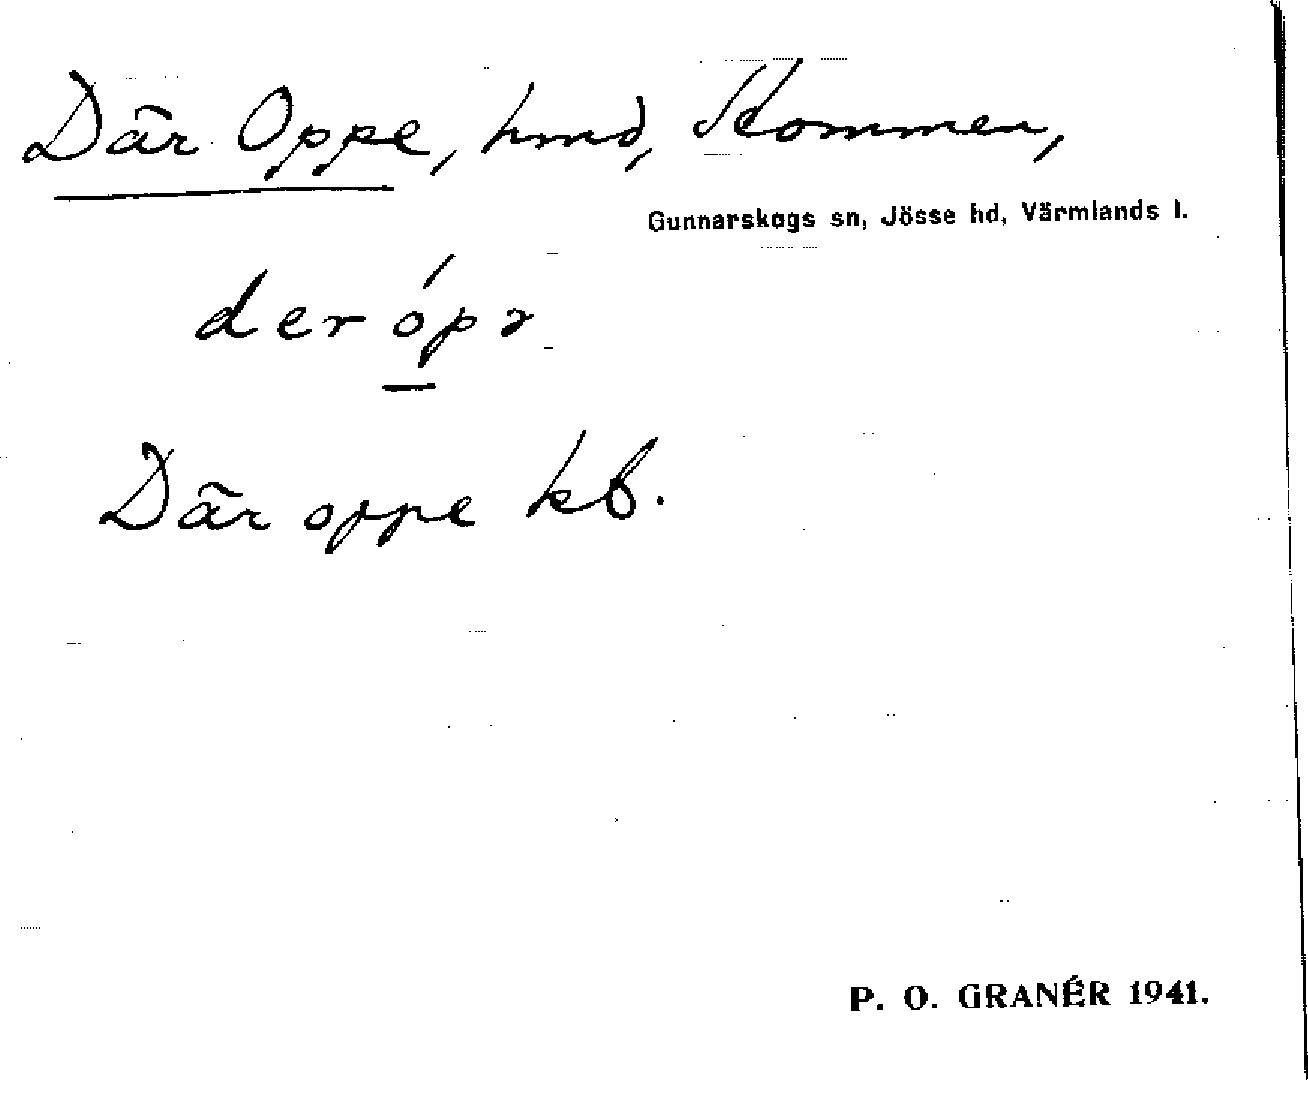 Där Oppe, hmd, Stommen,
Gunnarskogs sn, Jösse hd, Värmlands l.
der ópə
Där oppe kb.
P. O. GRANÉR 1941.